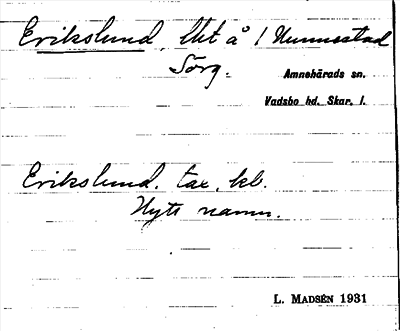 Erikslund, lht å 1 Nunnestad
Sörg.
Amnehärads sn.
Vadsbo hd. Skar. l.
Erikslund. tax. kb.
Nytt namn.
L. MADSÉN 1931